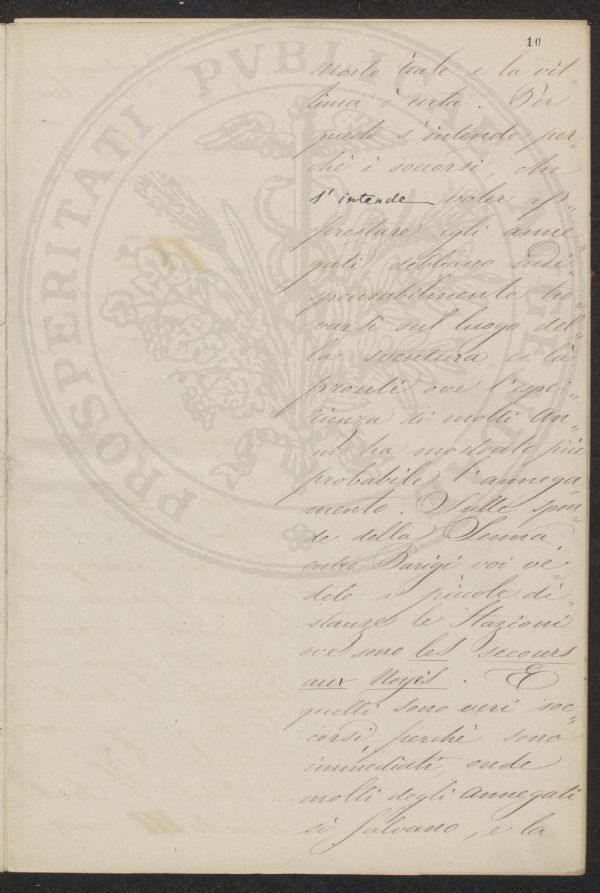 10
morte reale e la vit-
tima è certa. Per
questo s'intende per-
chè i soccorsi, che
s'intende voler ap-
prestare agli anne-
gati debbano indi-
spensabilmente tro-
varsi sul luogo del-
la sventura, e là
pronti ove l'espe-
rienza di molti an-
ni ha mostrato più
probabile l'annega
mento. Sulle spon-
de della Senna
entro Parigi voi ve-
dete a piccole di-
stanze le Stazioni
ove sono les secours
aux Noyés. E
quelli sono veri soc-
corsi perchè sono
immediati, onde
molti degli annegati
si salvano, e la
PROSPERITATI PVBLICAE